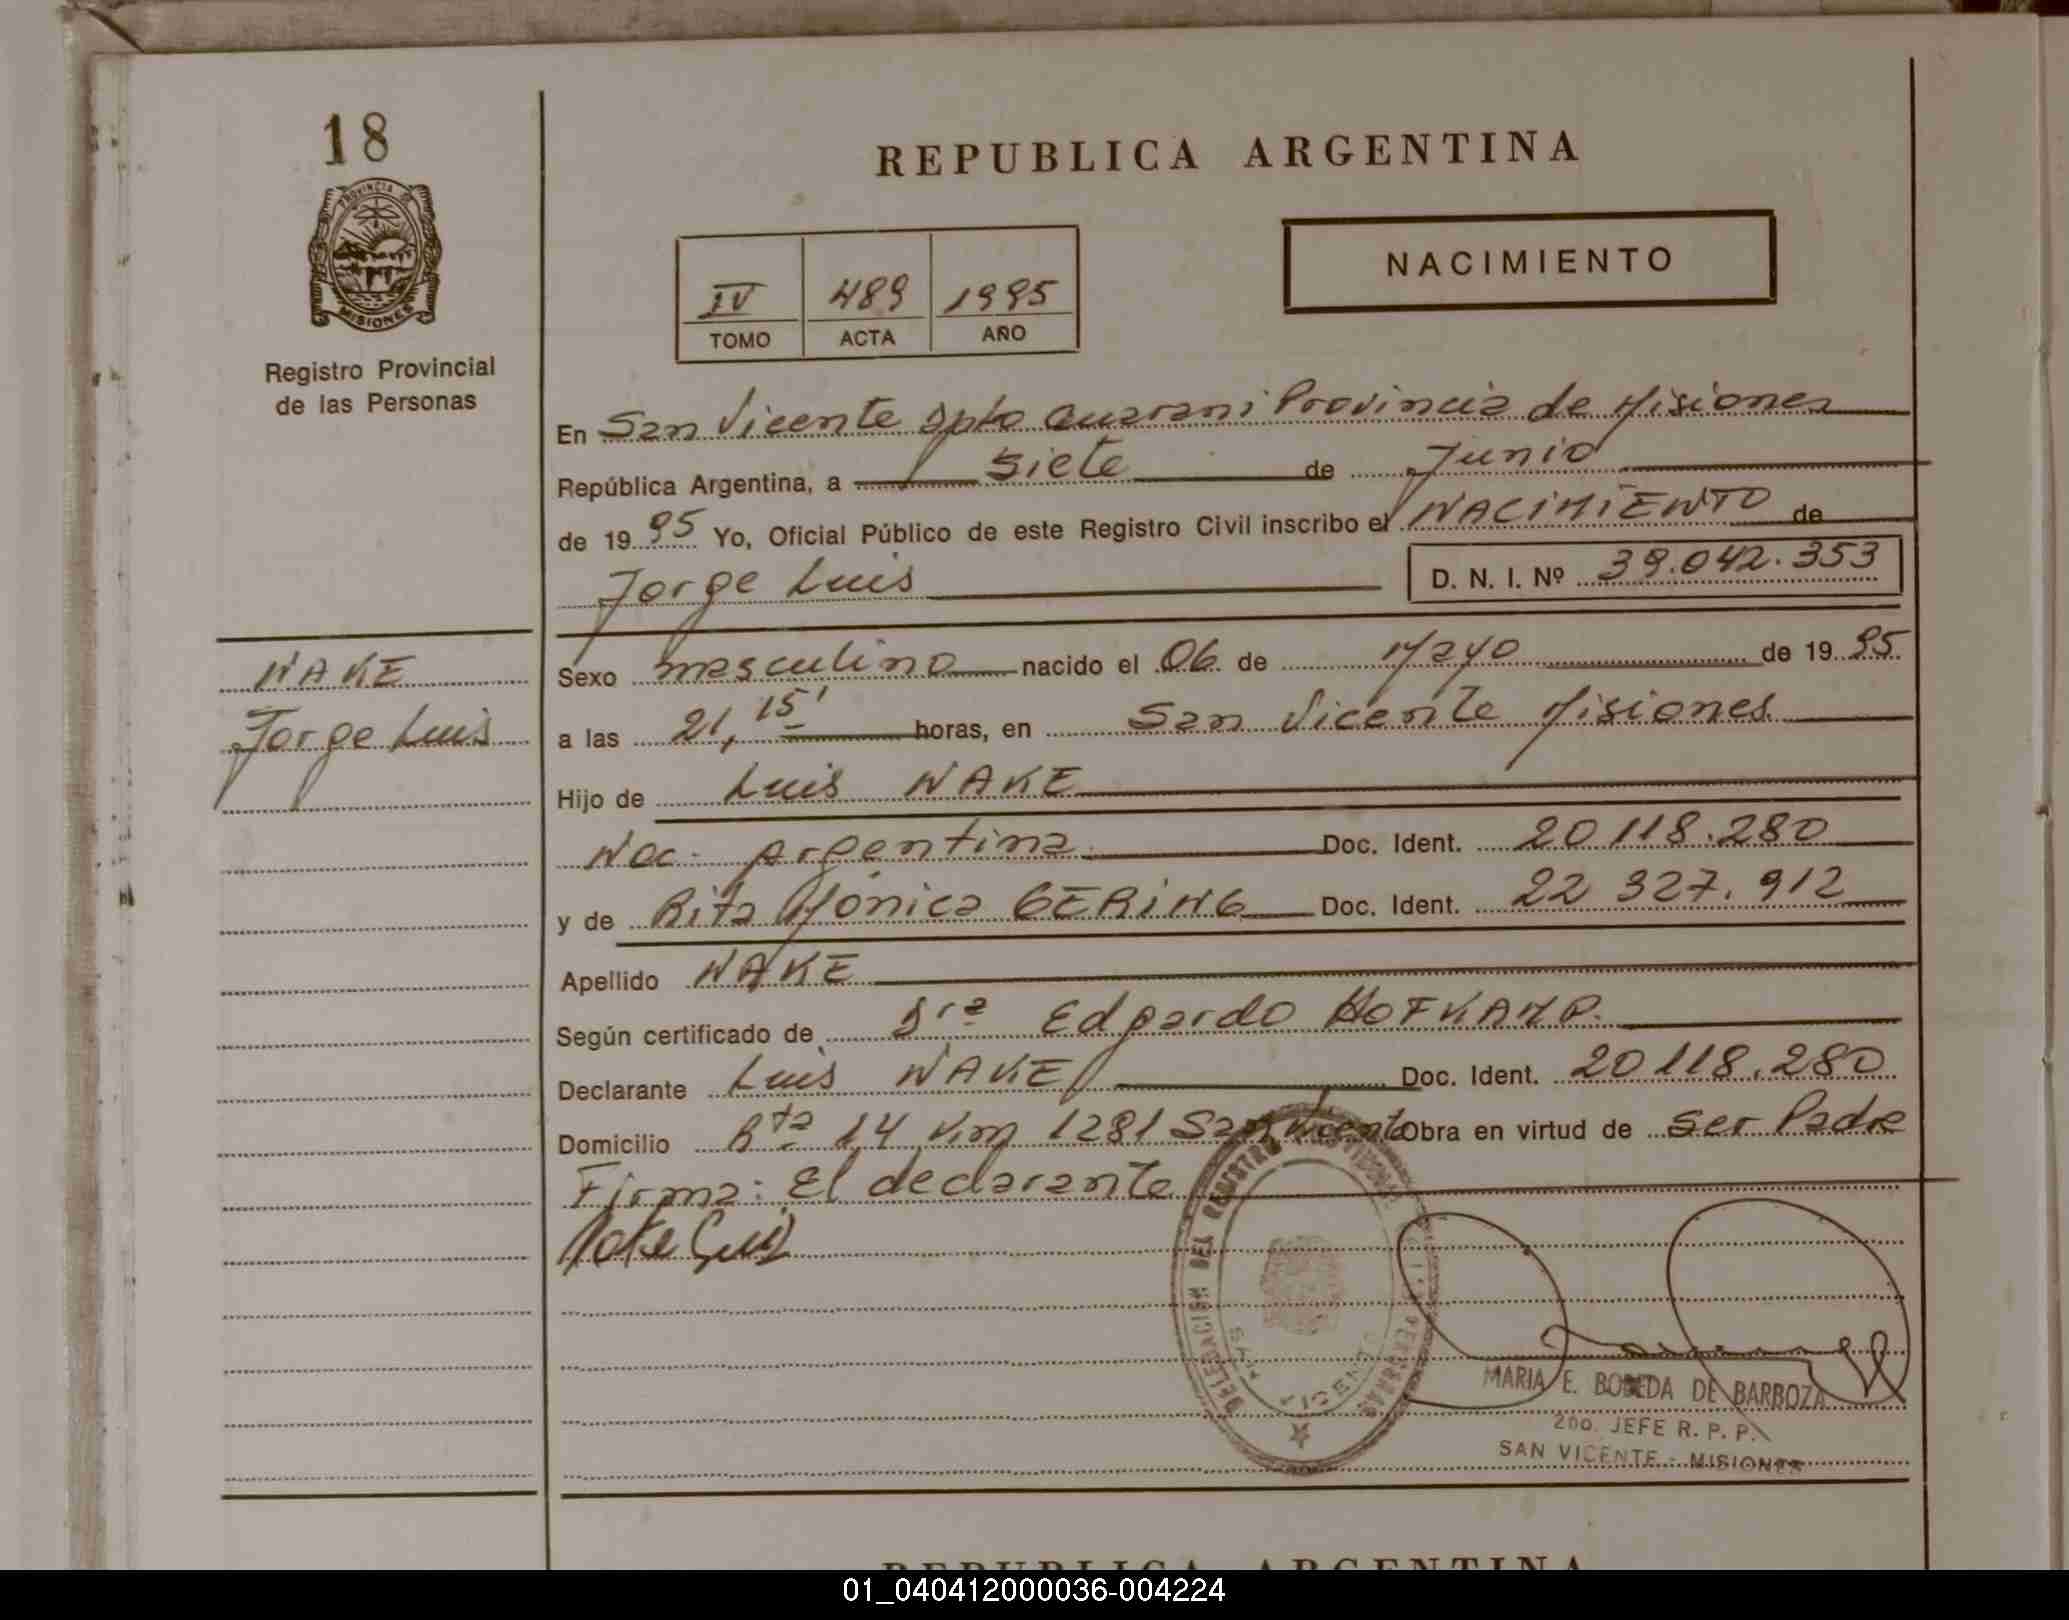 18
PROVINCIA DE
MISIONES
Registro Provincial
de las Personas
REPUBLICA ARGENTINA
NACIMIENTO
IV 489 1995
TOMO ACTA AÑO
En San Vicente Dpto Guarani Provincia de Misiones
República Argentina, a siete de Junio
de 1995 Yo, Oficial Público de este Registro Civil inscribo el NACIMIENTO de
Jorge Luis D. N. I. Nº 39.042.353
WAKE
Jorge Luis
Sexo masculino nacido el 06 de Mayo de 1995
a las 21,15' horas, en San Vicente Misiones
Hijo de Luis WAKE
Nac. Argentina Doc. Ident. 20118.280
y de Rita Mónica GERING Doc. Ident. 22 327.912
Apellido WAKE
Según certificado de Dra Edgardo HOFKAMP.
Declarante Luis WAKE Doc. Ident. 20118.280
Domicilio Rta 14 Km 1281 San Vicente Obra en virtud de ser Padre
Firma: El declarante
DELEGACION DEL REGISTRO PROVINCIAL DE LAS PERSONAS
SAN VICENTE
MARIA E. BOBEDA DE BARBOZA
2do. JEFE R. P. P.
SAN VICENTE - MISIONES
REPUBLICA ARGENTINA
01_040412000036-004224